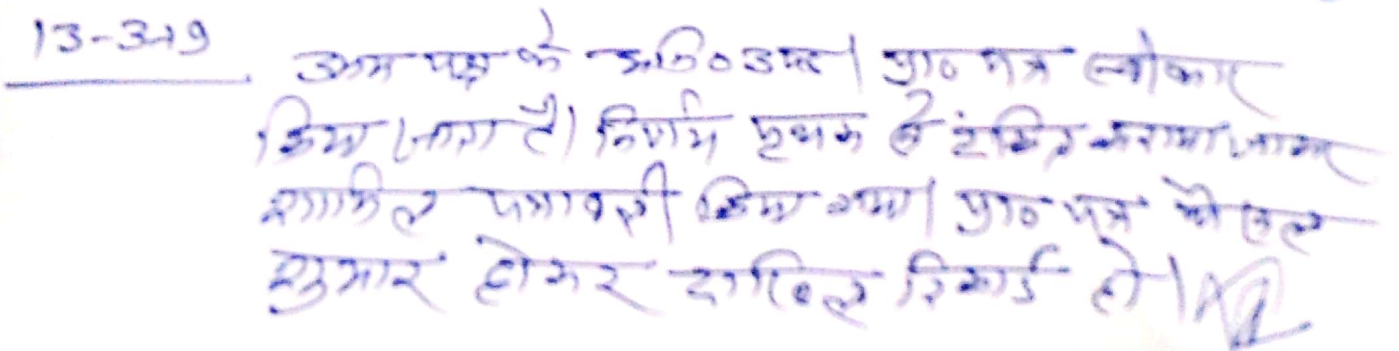 13-3-19 उभय पक्ष के अभि० उप०। प्रा० पत्र स्वीकार
किया जाता है। निर्णय पृथक से टंकित कराया जाकर
शामिल पत्रावली किया गया। प्रा० पत्र फैसल
शुमार होकर दाखिल रिकार्ड हो।